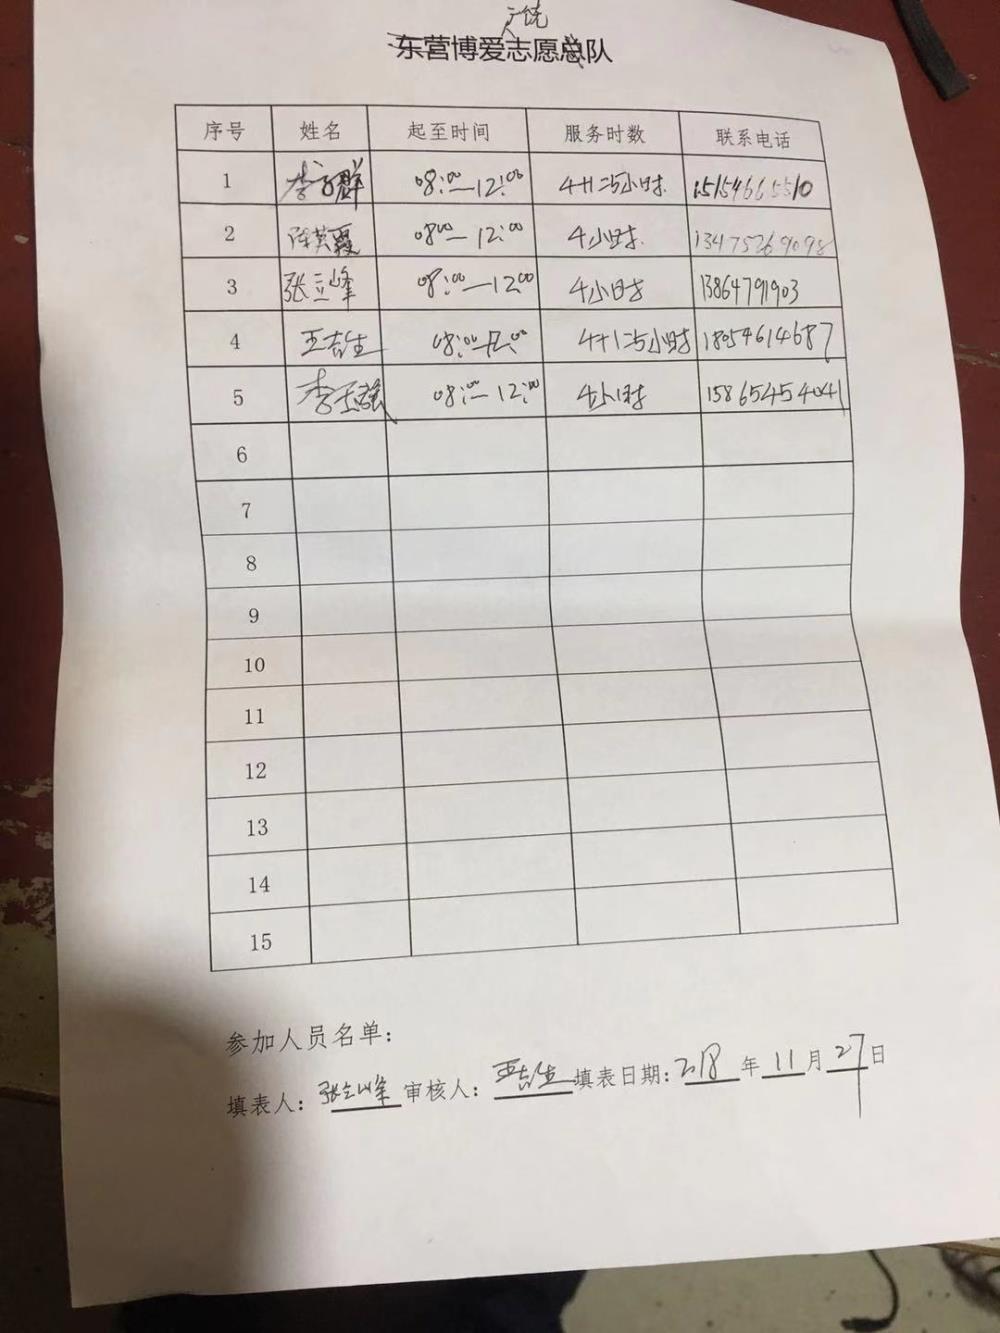 广饶
东营博爱志愿总队
序号 姓名 起至时间 服务时数 联系电话
1 李 群 08:00—12:00 4+1=5小时 15154665510
2 陈英霞 08:00—12:00 4小时 13475269098
3 张立峰 08:00—12:00 4小时 13864791903
4 王吉生 08:00—12:00 4+1=5小时 18054614687
5 李玉 08:00—12:00 4小时 15865454041
6
7
8
9
10
11
12
13
14
15
参加人员名单:
填表人: 张立峰 审核人: 王吉生 填表日期: 2018 年 11 月 27 日